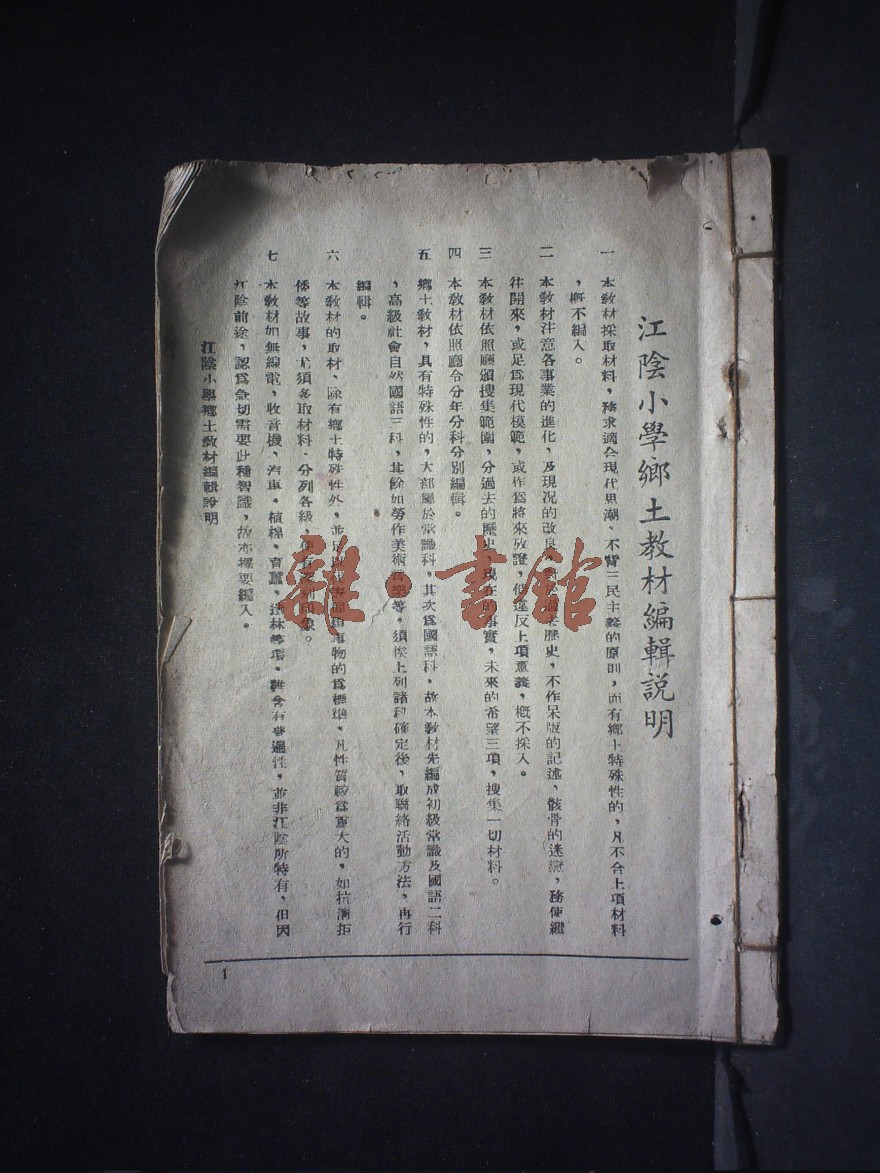 江陰小學鄉土教材編輯說明
一 本教材採取材料，務求適合現代思潮、不背三民主義的原則，而有鄉土特殊性的，凡不合上項材料
，概不編入。
二 本教材注意各事業的進化，及現況的改良，過去歷史，不作呆版的記述、骸骨的迷戀，務使繼
往開來，或足爲現代模範，或作爲將來攷證，倘違反上項意義，概不採入。
三 本教材依照廳頒搜集範圍，分過去的歷史，現在的事實，未來的希望三項，搜集一切材料。
四 本教材依照廳令分年分科分別編輯。
五 鄉土教材，具有特殊性的，大部屬於常識科，其次爲國語科，故本教材先編成初級常識及國語二科
，高級社會自然國語三科，其餘如勞作美術音樂等，須俟上列諸科確定後，取聯絡活動方法，再行
編輯。
六 本教材的取材、除有鄉土特殊性外，並足以事物的爲標準，凡性質較爲重大的，如抗淸拒
倭等故事，尤須多取材料、分列各級，使有印象。
七 本教材如無線電，收音機、汽車，植棉，育蠶，造林等項，雖含有普遍性，並非江陰所特有，但因
江陰前途，認爲急切需要此種智識，故亦擇要編入。
江陰小學鄉土教材編輯說明
1
雜·書館